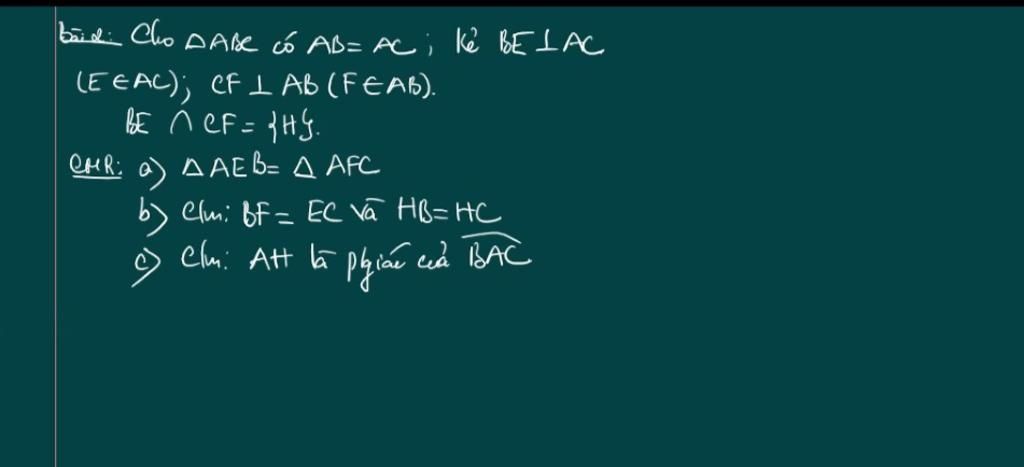 bài 2: Cho ΔABC có AB = AC ; kẻ BE ⊥ AC
(E ∈ AC); CF ⊥ AB (F ∈ AB).
BE ∩ CF = {H}.
CMR: a) Δ AEB = Δ AFC
b) Clm: BF = EC và HB = HC
c) Clm: AH là pgiác của BAC